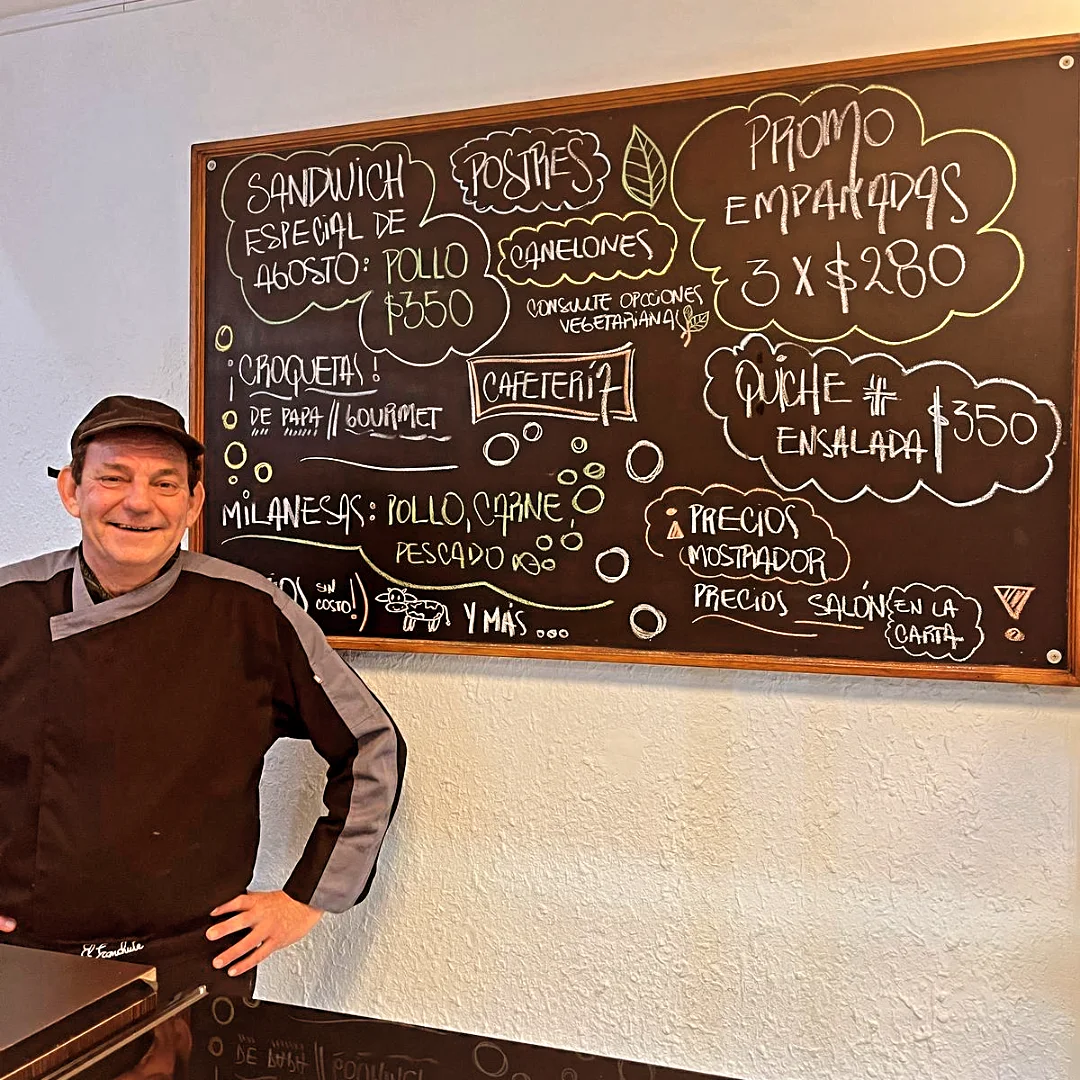 SANDWICH
ESPECIAL DE
AGOSTO: POLLO
$350
POSTRES
CANELONES
CONSULTE OPCIONES
VEGETARIANAS
PROMO
EMPANADAS
3 X $280
¡CROQUETAS!
DE PAPA // GOURMET
CAFETERÍA
QUICHE +
ENSALADA $350
MILANESAS: POLLO, CARNE,
PESCADO
SIN
COSTO!)
Y MÁS...
PRECIOS
MOSTRADOR
PRECIOS SALÓN EN LA
CARTA
DE PAPA // GOURMET